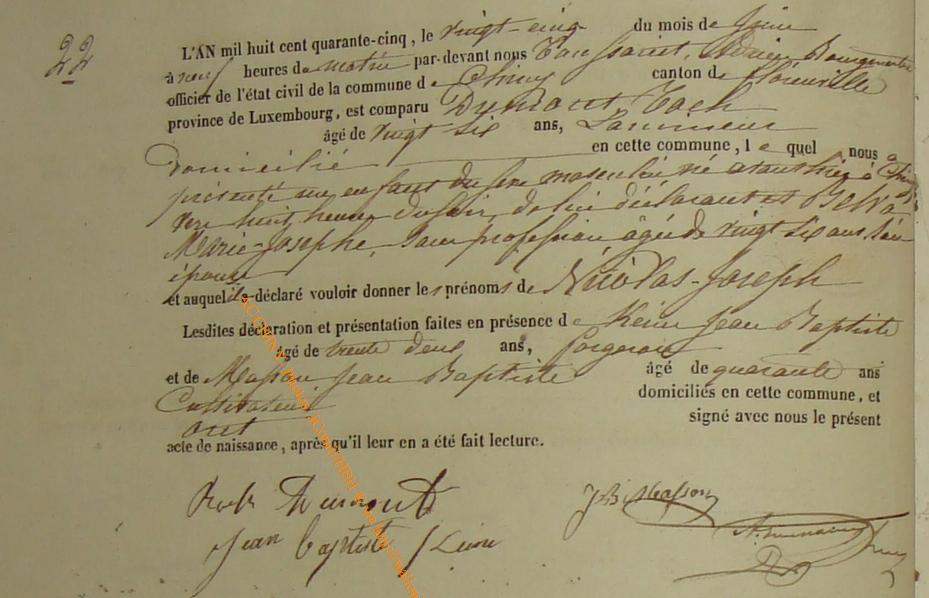 22
L'AN mil huit cent quarante-cinq, le vingt-cinq du mois de Juin
à neuf heures du matin par-devant nous Toussaint,
officier de l'état civil de la commune de Chiny canton de Florenville
province de Luxembourg, est comparu Dumont Roch
âgé de vingt six ans,
domicilié en cette commune, le quel nous a
présenté un enfant du sexe masculin né avant hier à Chiny
vers huit heures du soir, de lui déclarant et Belva
Marie-Josephe, sans profession âgée de vingt six ans, son
épouse
et auquel il a déclaré vouloir donner les prénoms de Nicolas-Joseph
Lesdites déclaration et présentation faites en présence de Jean Baptiste
âgé de trente deux ans, forgeron
et de Masson Jean Baptiste âgé de quarante ans
Cultivateur domiciliés en cette commune, et
ont signé avec nous le présent
acte de naissance, après qu'il leur en a été fait lecture.
Roch Dumont JB Masson
Jean baptiste